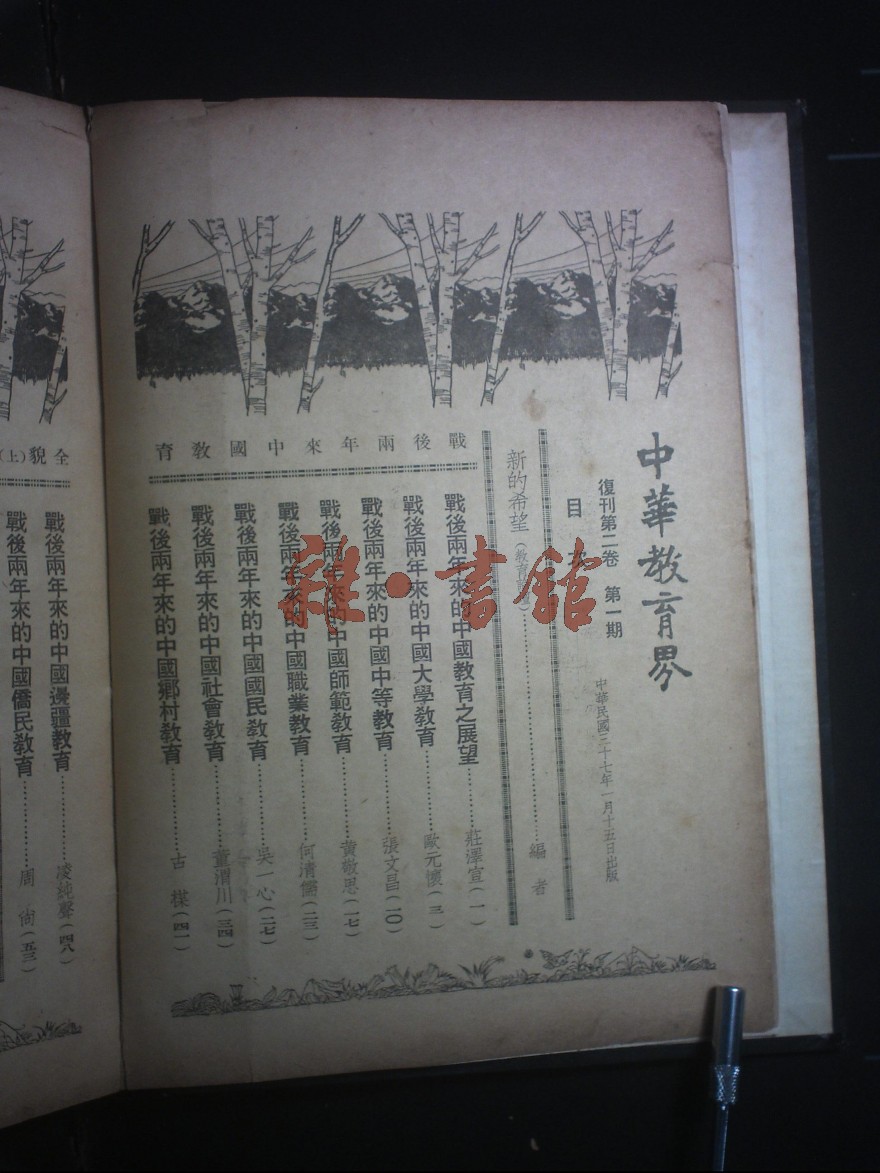 中華教育界
復刊第二卷 第一期
中華民國三十七年一月十五日出版
目次
新的希望(教育……………………編者
戰後兩年來中國教育
戰後兩年來的中國教育之展望………莊澤宣(一)
戰後兩年來的中國大學教育…………歐元懷(三)
戰後兩年來的中國中等教育…………張文昌(一〇)
戰後兩年來的中國師範教育…………黃敬思(一七)
戰後兩年來的中國職業教育…………何清儒(二三)
戰後兩年來的中國國民教育…………吳一心(二七)
戰後兩年來的中國社會教育…………董渭川(三四)
戰後兩年來的中國鄉村教育…………古楳(四一)
全貌(上)
戰後兩年來的中國邊疆教育…………凌純聲(四八)
戰後兩年來的中國僑民教育…………周尚(五三)
雜·書館